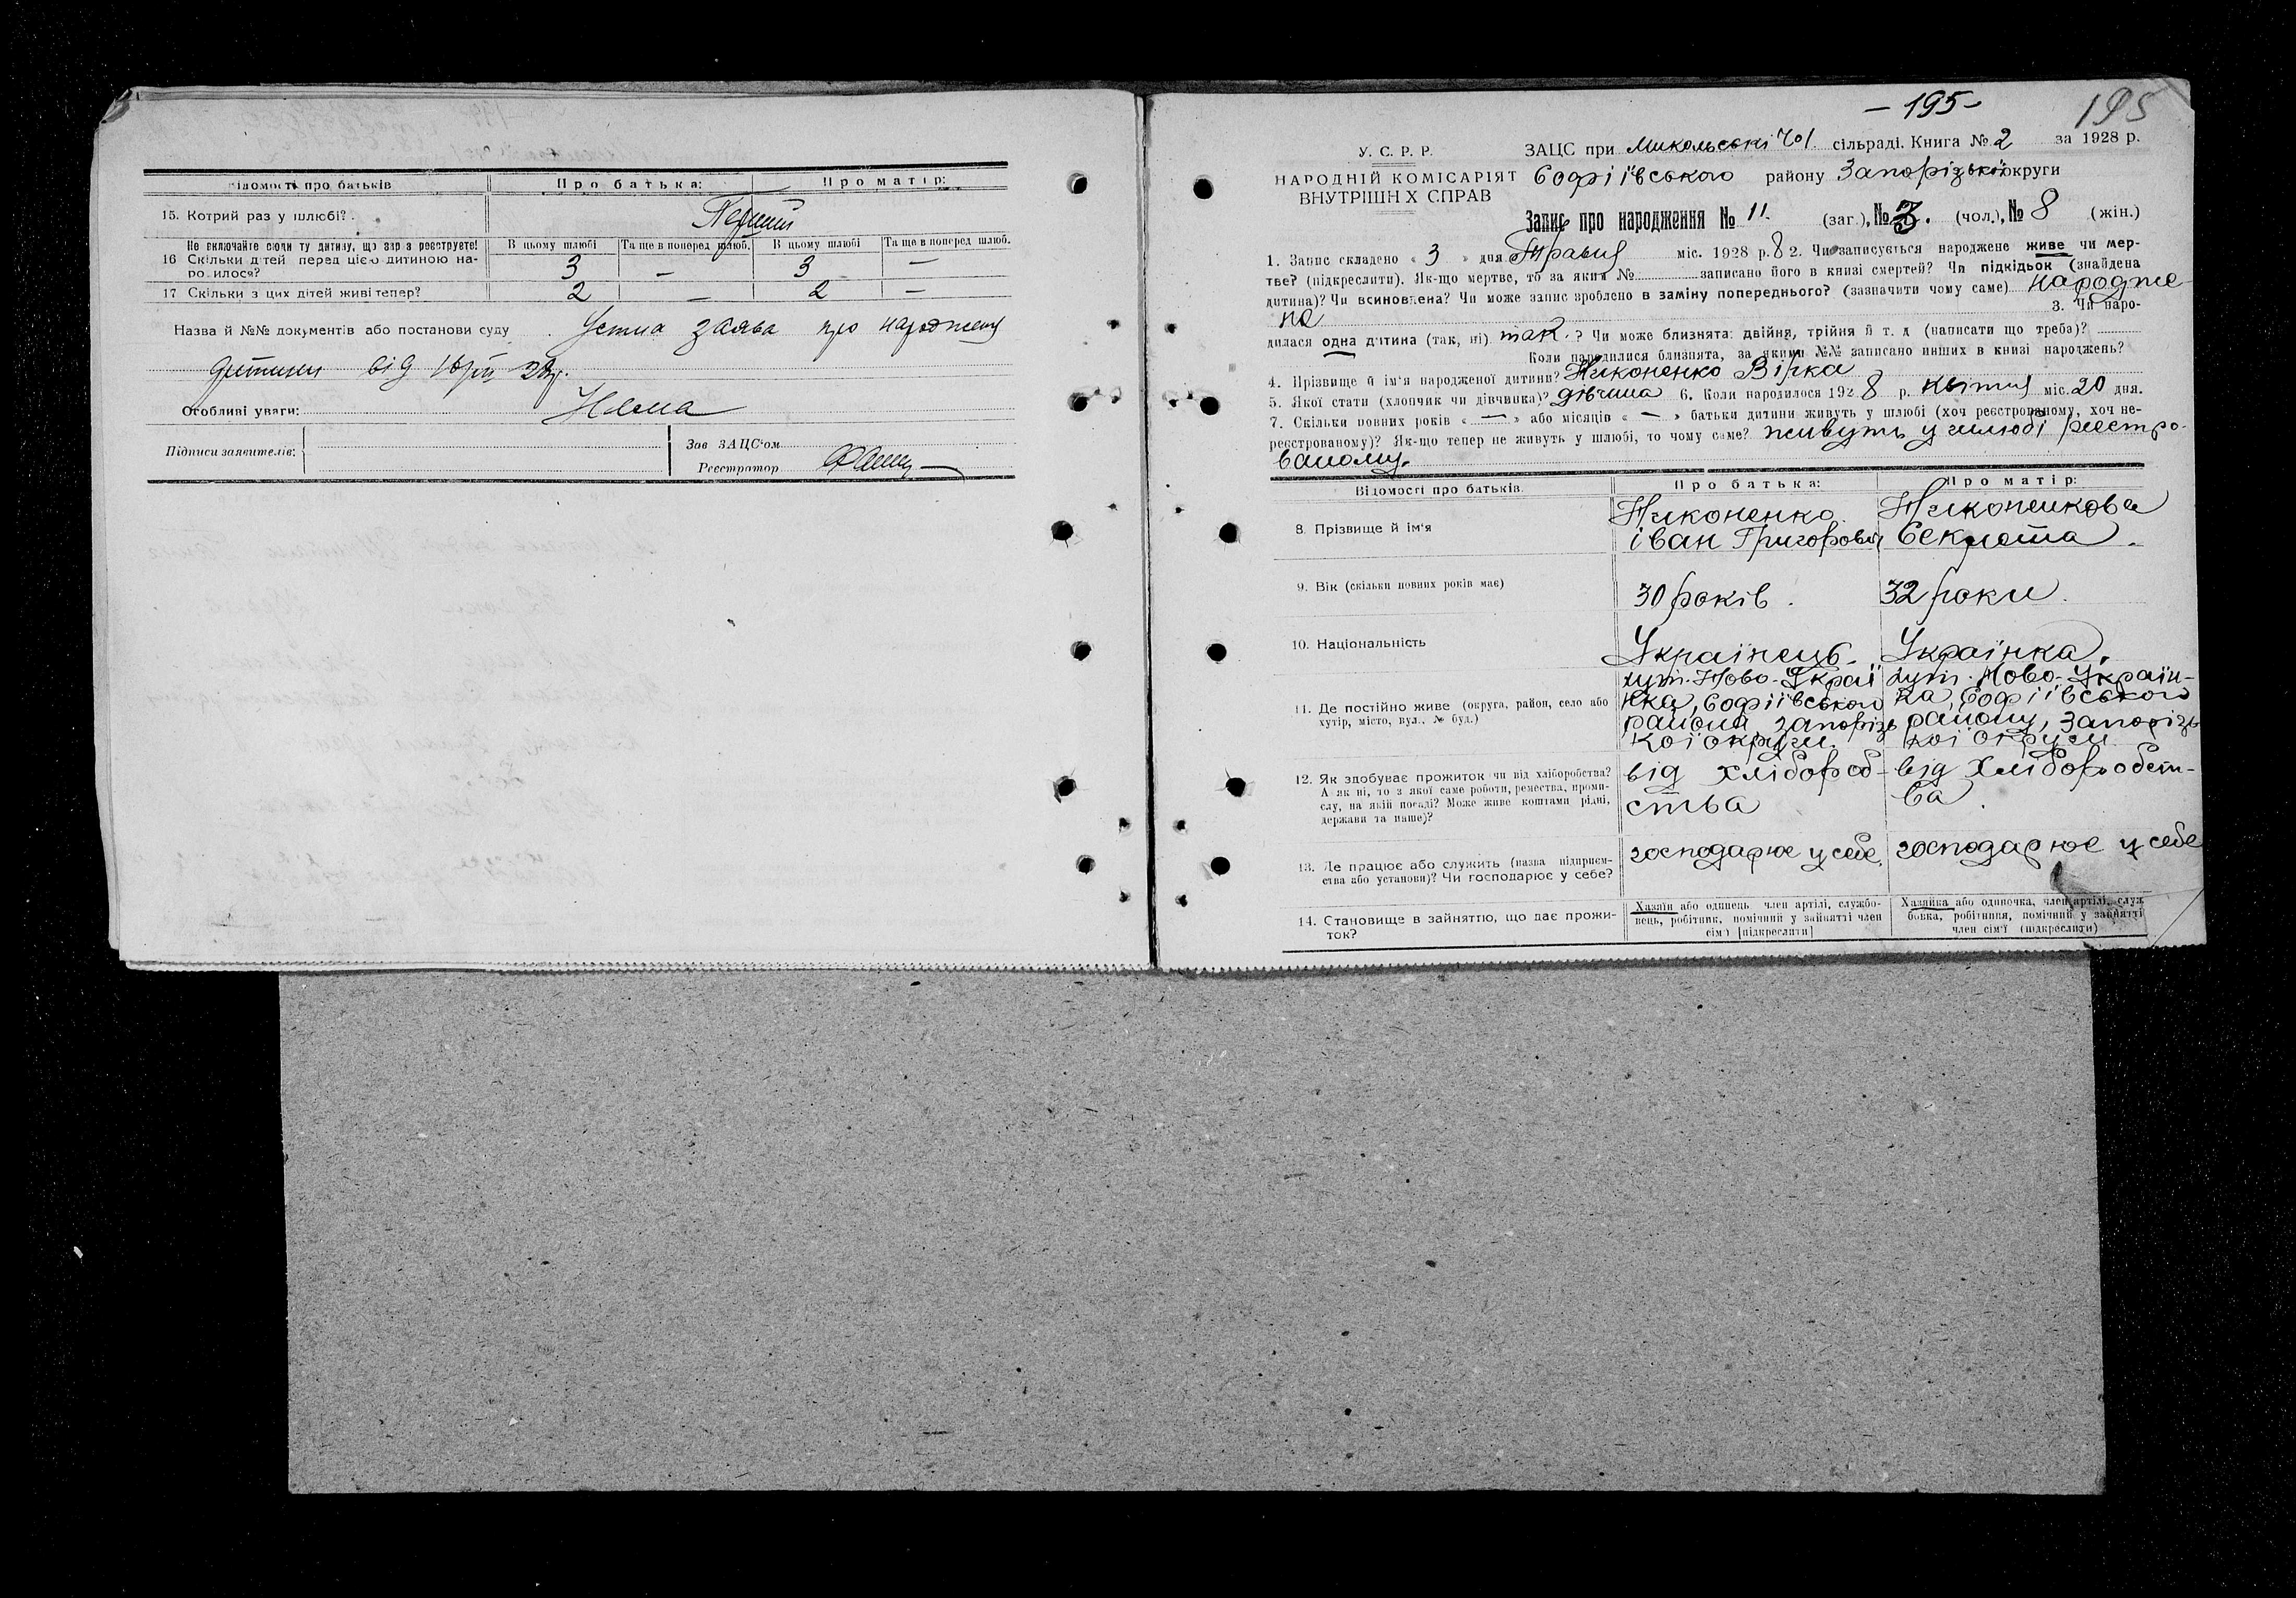 Відомості про батьків
Про батька:
Про матір:
15. Котрий раз у шлюбі?
Перший
Не включайте сюди ту дитину, що зараз реєструєте!
В цьому шлюбі
Та ще в поперед шлюб.
В цьому шлюбі
Та ще в поперед шлюб.
16 Скільки дітей перед цією дитиною на-
родилося?
3 — 3 —
17 Скільки з цих дітей живі тепер?
2 — 2 —
Назва й №№ документів або постанови суду Устна заява про народженн
дитини від
Особливі уваги: Нема
Підписи заявителів:
Зав ЗАЦС'ом
Реєстратор
— 195 —
195
У. С. Р. Р.
НАРОДНІЙ КОМІСАРІЯТ
ВНУТРІШНІХ СПРАВ
ЗАЦС при Микольські №1 сільраді. Книга № 2 за 1928 р.
Софіївського району Запорізької округи
Запис про народження № 11. (заг.), № 3. (чол.), № 8 (жін.)
1. Запис складено « 3 » дня Травня міс. 1928 р. 8 2. Чи записується народжене живе чи мер-
тве? (підкреслити). Як-що мертве, то за яким № записано його в книзі смертей? Чи підкідьок (знайдена
дитина)? Чи всиновлена? Чи може запис зроблено в заміну попереднього? (зазначити чому саме) народже-
на 3. Чи наро-
дилася одна дитина (так, ні) так. ? Чи може близнята: двійня, трійня й т. д (написати що треба)?
Коли народилися близнята, за якими №№ записано инших в книзі народжень?
4. Прізвище й ім'я народженої дитини? Никоненко Вірка
5. Якої стати (хлопчик чи дівчинка)? дівчина 6. Коли народилося 192 8 р. квітня міс. 20 дня.
7. Скільки повних років « — » або місяців « — » батьки дитини живуть у шлюбі (хоч реєстрованому, хоч не-
реєстрованому)? Як-що тепер не живуть у шлюбі, то чому саме? живуть у шлюбі реєстро-
ваному.
Відомості про батьків.
Про батька:
Про матір:
8. Прізвище й ім'я
Никоненко
Іван Григорович
Никоненкова
Секлета.
9. Вік (скільки повних років має)
30 років.
32 роки.
10. Національність
Українець.
Українка.
11. Де постійно живе (округа, район, село або
хутір, місто, вул., № буд.)
хут. Ново-Украї
нка, Софіївського
району, Запорізь
кої округи.
хут. Ново-Україн-
ка, Софіївського
району, Запорізь
кої округи
12. Як здобуває прожиток чи від хліборобства?
А як ні, то з якої саме роботи, ремества, проми-
слу, на якій посаді? Може живе коштами рідні,
держави та инше)?
від хлібороб-
ства
від хліборобст-
ва.
13. Де працює або служить (назва підприєм-
ства або установи)? Чи господарює у себе?
господарює у себе.
господарює у себе
14. Становище в зайняттю, що дає прожи-
ток?
Хазяїн або одинець член артілі, службо-
вець, робітник, помічний у зайнятті член
сім'ї [підкреслити]
Хазяйка або одиночка, член артілі, служ
бовка, робітниця, помічний у зайнятті
член сім'ї (підкреслити)